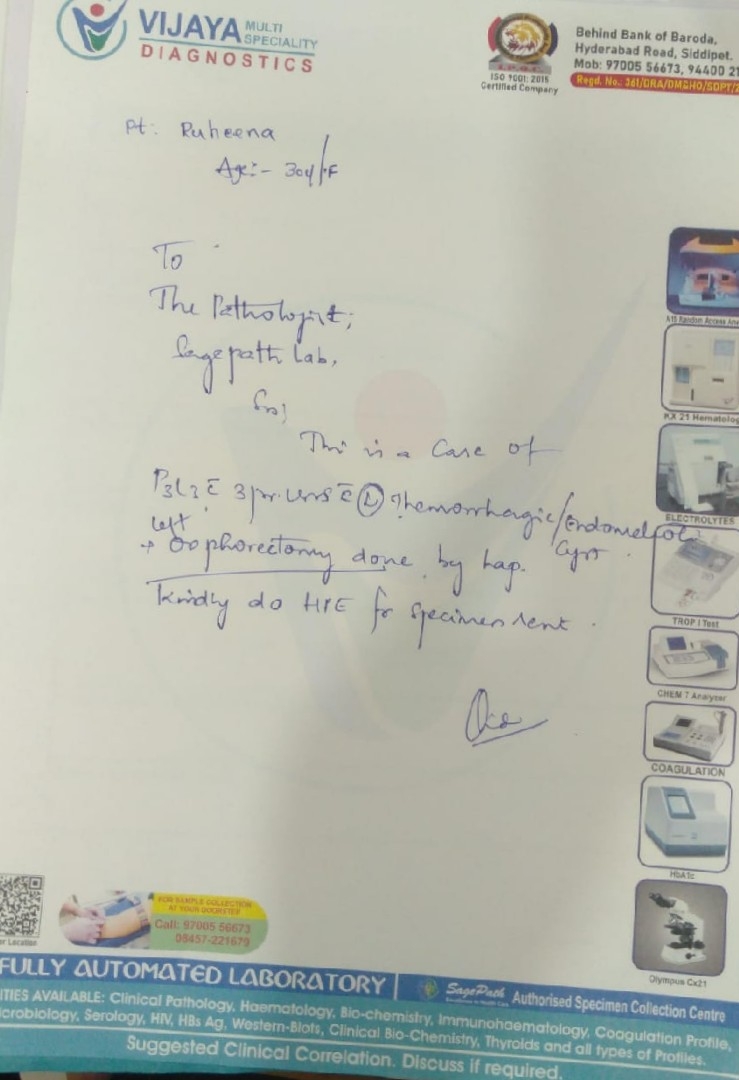 VIJAYA MULTI SPECIALITY
DIAGNOSTICS
I.P.Q.C.
ISO 9001: 2015
Certified Company
Behind Bank of Baroda,
Hyderabad Road, Siddipet.
Mob: 97005 56673, 94400 21
Regd. No.: 361/DRA/DMGHO/SDPT/2
Pt: Ruheena
Age:- 30y/F
To
The Pathologist,
Sagepath Lab,
Sir,
This is a Case of
P3L3 c̄ 3 pr. LSCS c̄ Ⓛ Hemorrhagic/Endometriotic
Cyst
left
→ Oophorectomy done by Lap.
Kindly do HPE for specimen sent.
A15 Random Access Ana
KX 21 Hematolog
ELECTROLYTES
TROP I Test
CHEM 7 Analyzer
COAGULATION
HbA1c
Olympus Cx21
er Location
FOR SAMPLE COLLECTION
AT YOUR DOORSTEP
Call: 97005 56673
08457-221679
FULLY AUTOMATED LABORATORY
SagePath Authorised Specimen Collection Centre
ITIES AVAILABLE: Clinical Pathology, Haematology, Bio-chemistry, Immunohaematology, Coagulation Profile,
crobiology, Serology, HIV, HBs Ag, Western-Blots, Clinical Bio-Chemistry, Thyroids and all types of Profiles.
Suggested Clinical Correlation. Discuss if required.